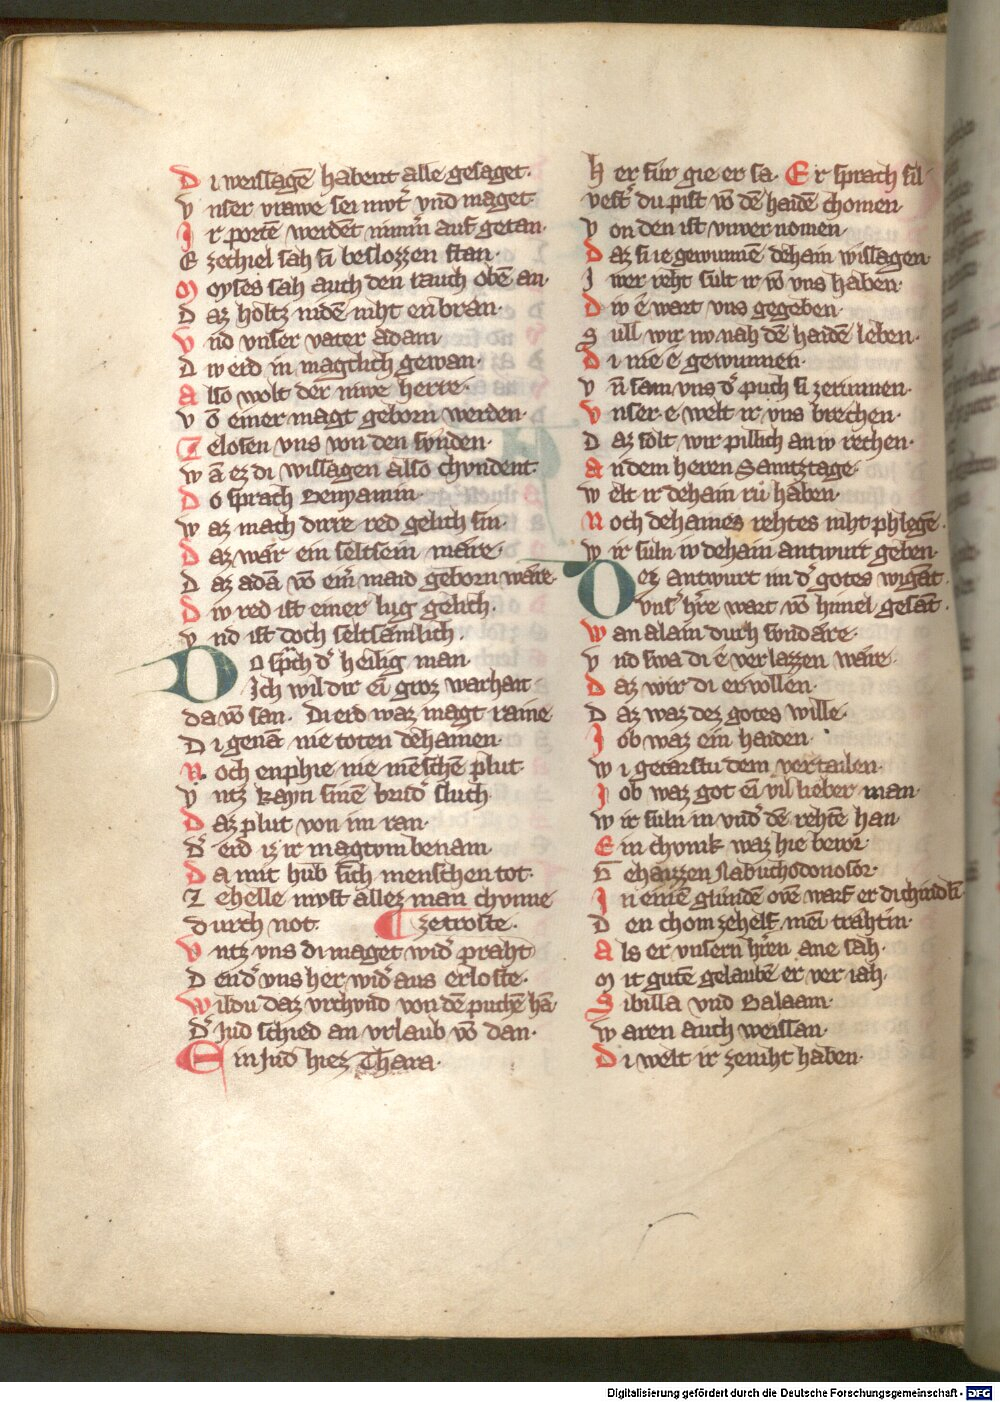 Di weissagē habent alle gesaget·
Vnser vrawe sei mvt̄ vnd maget·
Ir portē werdēt nimm̄ auf getan·
Ezechiel sah si beslozzen stan·
Moyses sah auch den rauch obē an·
Daz holtz nidē niht enbran·
Vnd vnser vater adam·
Diw erd in magtlich gewan·
Also wolt der niwe herre·
Vō einer magt geborn werden·
Zelosen vns von den svnden·
Wā ez di wissagen also chvndent·
Do sprach Benyamin·
Waz mach dirre red gelich sin·
Daz wär ein seltsein märe·
Daz adā vō eim̄ maid geborn wäre·
Diw red ist einer lug gelich·
Vnd ist doch seltsämlich·
Do sp̄ch d͛ heilig man·
Ich wil dir ei groz warhait
da vō san· Di erd waz magt raine
Di genā nie toten dehainen·
Noch enphie nie mēschē plut·
Vntz Kayn sinē brud͛ sluch
Daz plut von im ran·
D͛ erd iz ir magtvm benam
Da mit hub sich menschen tot·
Zehelle mvst allez man chvnne
durch not· ze troste·
Vntz vns di maget wid͛ praht
Dend͛ vns her wid͛ aus erloste·
Wildu daz vrchvnd von dē puchē hā
D͛ Jud schied an vrlaub vō dan·
Ein Jud hiez Thara·
Her für gie er sa· Er sprach sil
vest͛ du pist vō dē haidē chomen·
Von den ist vnvernomen·
Daz si ie gewunnē dehain wissagen·
Iwer reht sült ir vō vns haben·
Diw ē wart vns gegeben·
Süll wir iw nah dē haidē leben·
Di nie ē gewunnen·
Vn̄ sam vns d͛ puch si zerinnen·
Vnser e welt ir vns brechen·
Daz solt wir pillich an iw rechen·
An dem heren Samtztage·
Welt ir dehain rů haben·
Noch dehaines rehtes niht phlegē·
Wir süln iw dehain antwurt geben·
Dez antwurt im d͛ gotes wigāt·
vns͛ h͛re wart vō himel gesāt·
Wan alain durch sündäre·
Vnd swa di ē verlazzen wäre·
Daz wir di ervollen·
Daz waz dez gotes wille·
Iob waz ein haiden·
Wi getarstu dem vertailen·
Iob waz got ei vil lieber man·
Wir süln in vnd͛ dē rehtē han
Ein chvnik waz hie bevor·
Gehaizzen Nabuchodonosor·
In einē glundē ovē warf er di chindel̄
Den chom zehelf mei trähtin·
Als er vnsern h͛ren ane sah·
Mit gutē gelaubē er veriah·
Sibilla vnd Balaam·
Waren auch weissan·
Di welt ir zeniht haben·
Digitalisierung gefördert durch die Deutsche Forschungsgemeinschaft - DFG